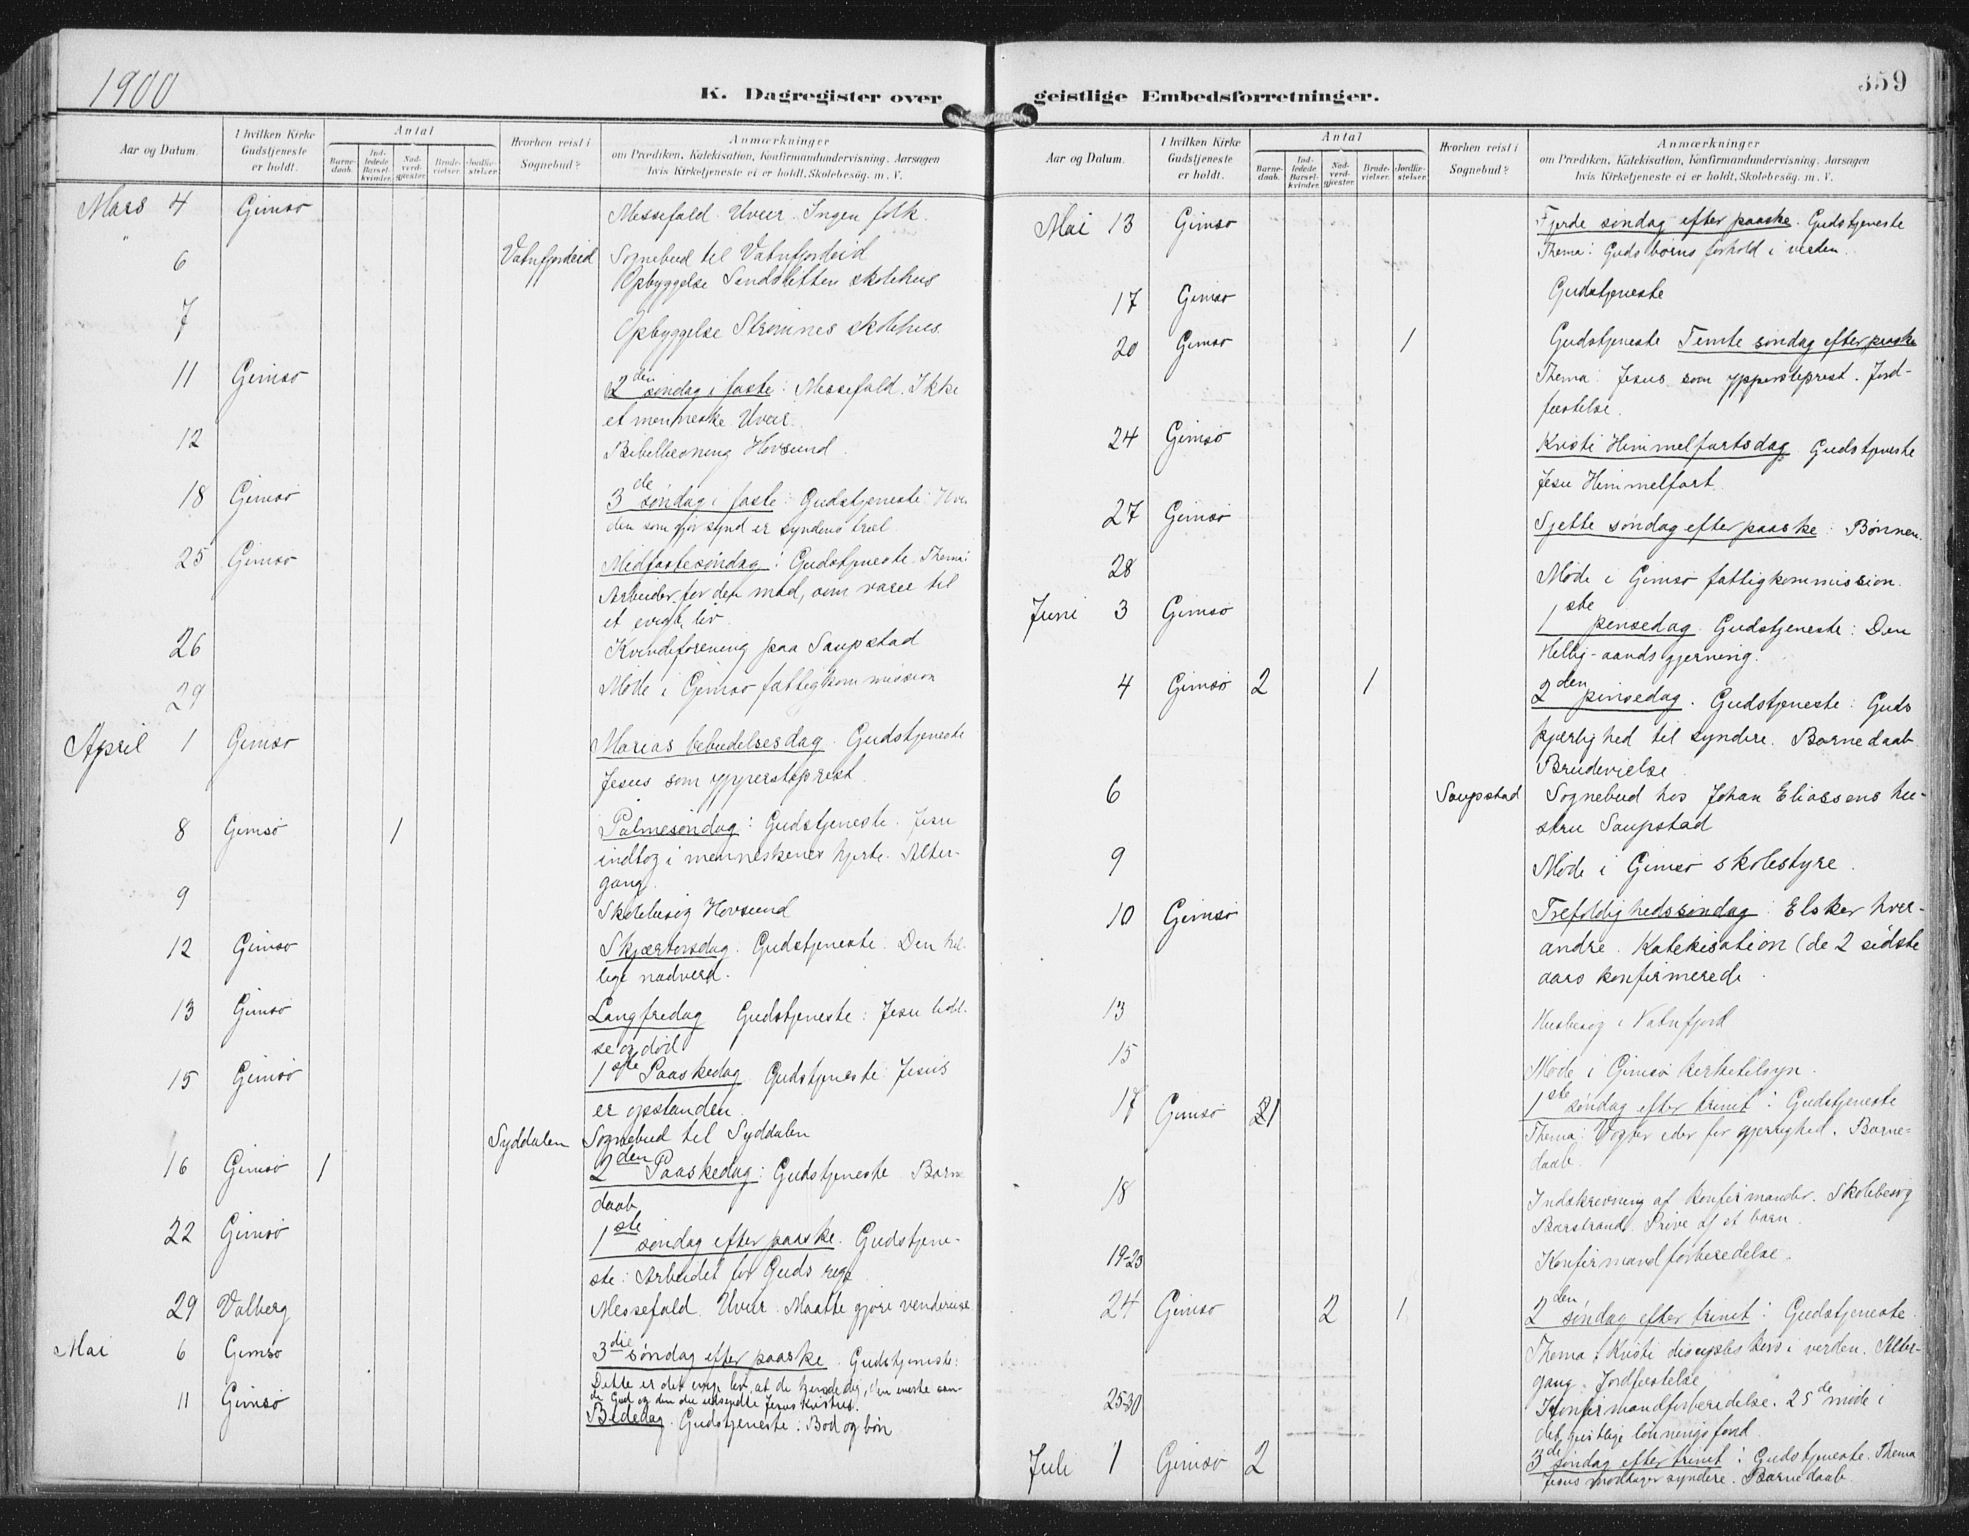 1900
K. Dagregister over
Aar og Datum.
I hvilken Kirke Gudstjeneste er holdt.
Antal
Barne-daab.
Ind-ledede Barsel-kvinder.
Nad-verd-gjester.
Brude-vielser.
Jordfæ-stelser.
Hvorhen reist i Sognebud?
Anmærkninger
om Prædiken, Katekisation, Konfirmandundervisning, Aarsagen
hvis Kirketjeneste ei er holdt, Skolebesøg. m. V.
Mars 4 Gimsø Messefald. Uveir. Ingen folk.
" 6 Vatnfjordeid Sognebud til Vatnfjordeid
Opbyggelse Sandsletten skolehus
7 Opbyggelse Strømnes skolehus
11 Gimsø 2den søndag i faste: Messefald. Ikke
et menneske. Uveir.
12 Bibellæsning Hovsund.
18 Gimsø 3de søndag i faste: Gudstjeneste: Hver
den som gjør synd er syndens træl.
25 Gimsø Midfastesøndag: Gudstjeneste. Thema:
Arbeider for den mad, som varer til
et evigt liv.
26 Kvindeforening paa Saupstad
29 Møde i Gimsø fattigkommission
April 1 Gimsø Marias bebudelsesdag. Gudstjeneste
Jesus som ypperstaprest.
8 Gimsø 1 Palmesøndag: Gudstjeneste. Jesu
indtog i menneskenes hjerte. Alter-
gang.
9 Skolebesøg Hovsund
12 Gimsø Skjærtorsdag. Gudstjeneste: Den hel-
lige nadverd.
13 Gimsø Langfredag Gudstjeneste: Jesu lidel-
se og død
15 Gimsø 1ste Paaskedag Gudstjeneste: Jesus
er opstanden.
Syddalen Sognebud til Syddalen
16 Gimsø 1 2den Paaskedag: Gudstjeneste Barne
daab
22 Gimsø 1ste søndag efter paaske. Gudstjene-
ste: Arbeidet for Guds rige
29 Valberg Messefald. Uveir. Maatte gjøre vendereise
Mai 6 Gimsø 3die søndag efter paaske. Gudstjeneste:
Dette er det evige liv, at de kjende dig, den eneste san-
de Gud og den du udsendte Jesus Kristus.
11 Gimsø Bededag. Gudstjeneste: Bod og bøn
geistlige Embedsforretninger.
359
Aar og Datum.
I hvilken Kirke Gudstjeneste er holdt.
Antal
Barne-daab.
Ind-ledede Barsel-kvinder.
Nad-verd-gjester.
Brude-vielser.
Jordfæ-stelser.
Hvorhen reist i Sognebud?
Anmærkninger
om Prædiken, Katekisation, Konfirmandundervisning, Aarsagen
hvis Kirketjeneste ei er holdt, Skolebesøg. m. V.
Mai 13 Gimsø Fjerde søndag efter paaske. Gudstjeneste
Thema: Guds børns forhold i verden.
17 Gimsø Gudstjeneste
20 Gimsø 1 Gudstjeneste Femte søndag efter paaske
Thema: Jesus som yppersteprest. Jord-
fæstelse.
24 Gimsø Kristi Himmelfartsdag Gudstjeneste
Jesu Himmelfart.
27 Gimsø Sjette søndag efter paaske: Bønnen.
28 Møde i Gimsø fattigkommission.
Juni 3 Gimsø 1ste pinsedag. Gudstjeneste: Den
Hellig-aands gjerning.
4 Gimsø 2 1 2den pinsedag. Gudstjeneste: Guds
kjærlighed til syndere. Barnedaab
Brudevielse
6 Saupstad Sognebud hos Johan Eliassens hu-
stru Saupstad
9 Møde i Gimsø skolestyre.
10 Gimsø Trefoldighedssøndag: Elsker hver-
andre. Katekisation (de 2 sidste
aars konfirmerede.
13 Husbesøg i Vatnfjord
15 Møde i Gimsø kirketilsyn.
17 Gimsø 1 1ste søndag efter trinit: Gudstjeneste
Thema: Vogter eder for gjerrighed. Barne-
daab.
18 Indskrivning af konfirmander. Skolebesøg
Barstrand. Prøve af et barn.
19-23 Konfirmandforberedelse.
24 Gimsø 2 1 2den søndag efter trinit: Gudstjeneste.
Thema: Kristi discipels kors i verden. Alter-
gang. Jordfæstelse
25-30 Konfirmandforberedelse. 25de møde i
det geistlige lønningsfond.
Juli 1 Gimsø 2 3de søndag efter trinit: Gudstjeneste. Thema
Jesus modtager syndere. Barnedaab.